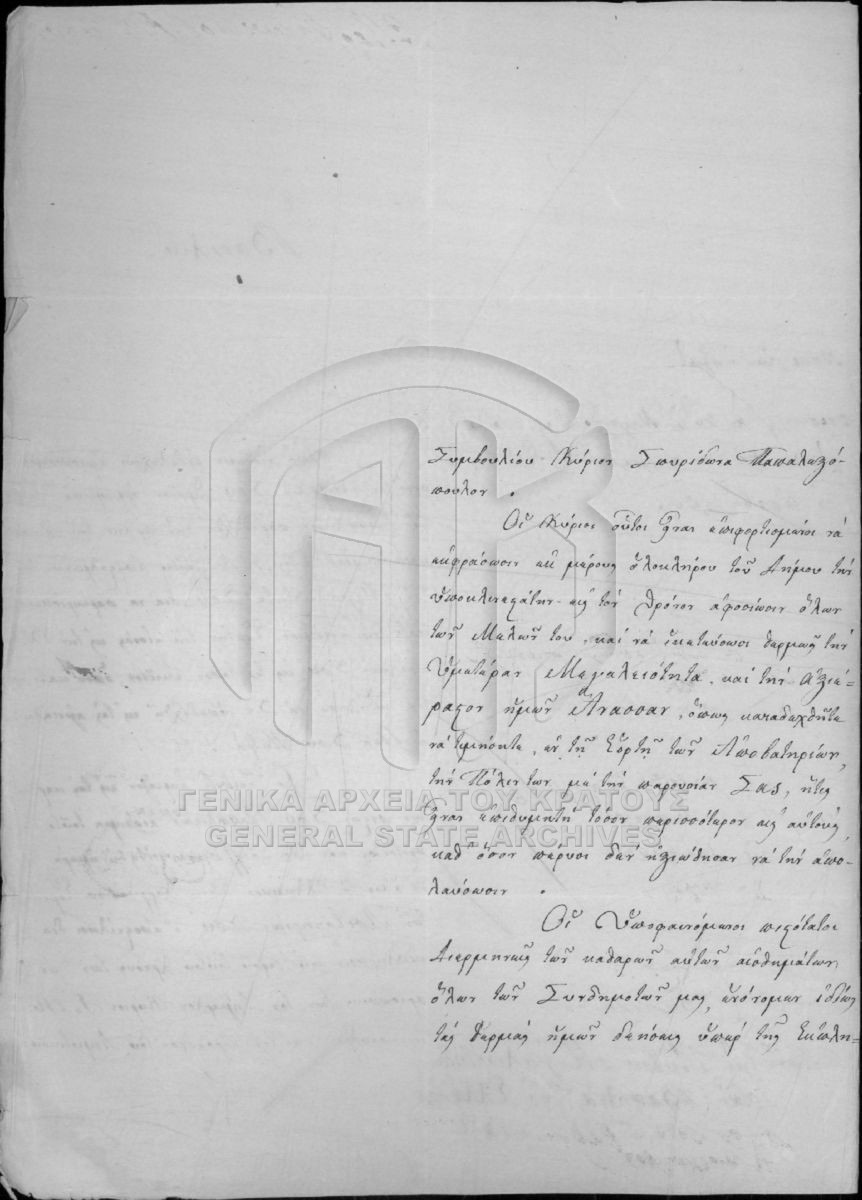 Συμβουλίου Κύριον Σπυρίδωνα Παπαλεξό-
πουλον.
Οἱ Κύριοι οὗτοι ἦναι ἐπιφορτισμένοι νὰ
ἐκφράσωσιν ἐκ μέρους ὁλοκλήρου τοῦ Δήμου τὴν
ὑποκλινεστάτην εἰς τὸν θρόνον ἀφοσίωσιν ὅλων
τῶν Μελῶν του, καὶ νὰ ἱκετεύσωσι θερμῶς τὴν
Ὑμετέραν Μεγαλειότητα, καὶ τὴν ἀξιέ-
ραστον ἡμῶν Ἄνασσαν, ὅπως καταδεχθῆτε
νὰ τιμήσητε, ἐν τῇ Ἑορτῇ τῶν Ἀποβατηρίων,
τὴν Πόλιν των μὲ τὴν παρουσίαν Σας, ἥτις
ἦναι ἐπιθυμητὴ τόσον περισσότερον εἰς αὐτούς,
καθ' ὅσον πέρυσι δὲν ἠξιώθησαν νὰ τὴν ἀπο-
λαύσωσιν.
Οἱ Ὑποφαινόμενοι πιστότατοι
Διερμηνεῖς τῶν καθαρῶν αὐτῶν αἰσθημάτων
ὅλων τῶν Συνδημοτῶν μας, ἑνόνομεν ἰδίως
τὰς θερμὰς ἡμῶν δεήσεις ὑπὲρ τῆς ἐκπλη-
ΓΕΝΙΚΑ ΑΡΧΕΙΑ ΤΟΥ ΚΡΑΤΟΥΣ
GENERAL STATE ARCHIVES